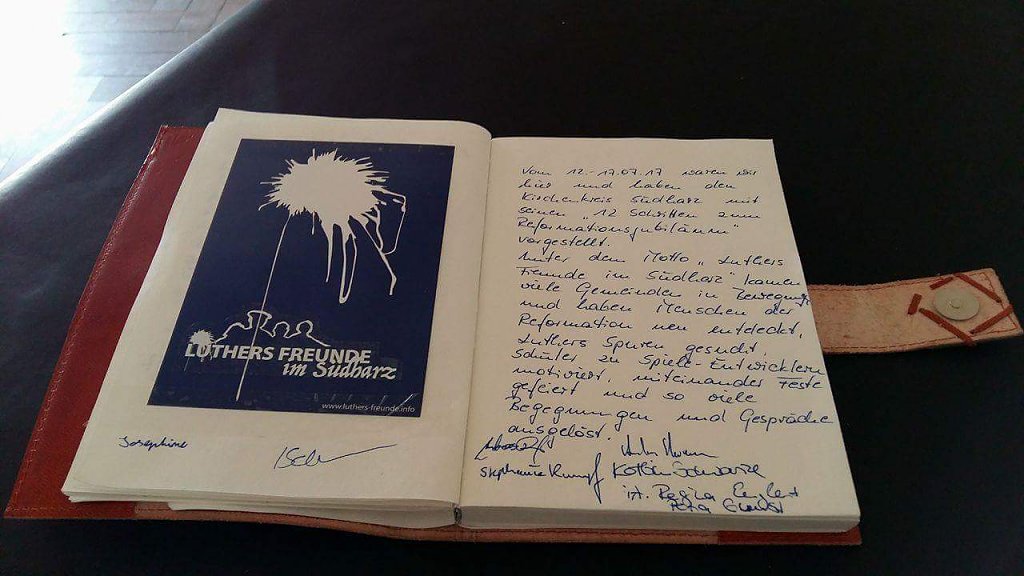 LUTHERS FREUNDE
im Südharz
www.luthers-freunde.info
Josephine
Vom 12.-17.07.17 waren wir
hier und haben den
Kirchenkreis Südharz mit
seinen „12 Schritten zum
Reformationsjubiläum"
vorgestellt.
Unter dem Motto „Luthers
Freunde im Südharz" kamen
viele Gemeinden in Bewegung
und haben Menschen der
Reformation neu entdeckt,
Luthers Spuren gesucht,
Schüler zu Spiele-Entwicklern
motiviert, miteinander Feste
gefeiert und so viele
Begegnungen und Gespräche
ausgelöst.
Stephanie Kumpf
Schwarze
i.A. Regina